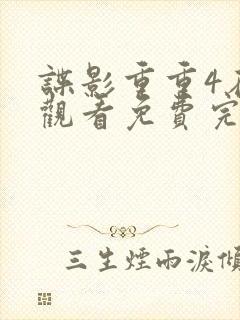 諜影重重4
觀看免費完
三生煙雨淚傾